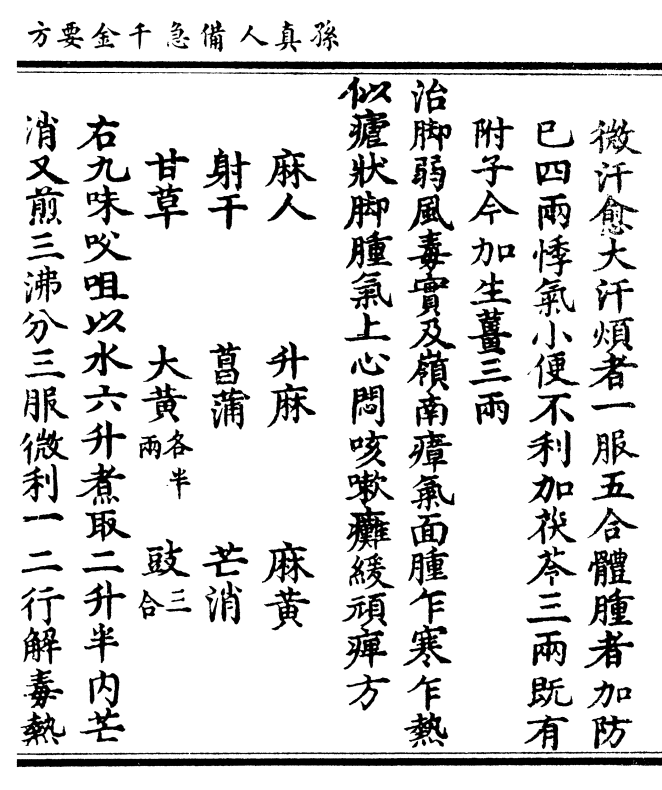 孫真人備急千金要方
微汗愈大汗煩者一服五合體腫者加防
巳四兩悸氣小便不利加茯苓三兩既有
附子今加生薑三兩
治脚弱風毒實及嶺南瘴氣面腫乍寒乍熱
似瘧狀脚腫氣上心悶咳嗽癱緩頑痺方
麻人 升麻 麻黃
射干 菖蒲 芒消
甘草 大黃各半兩 豉三合
右九味㕮咀以水六升煮取二升半内芒
消又煎三沸分三服微利一二行解毒熱